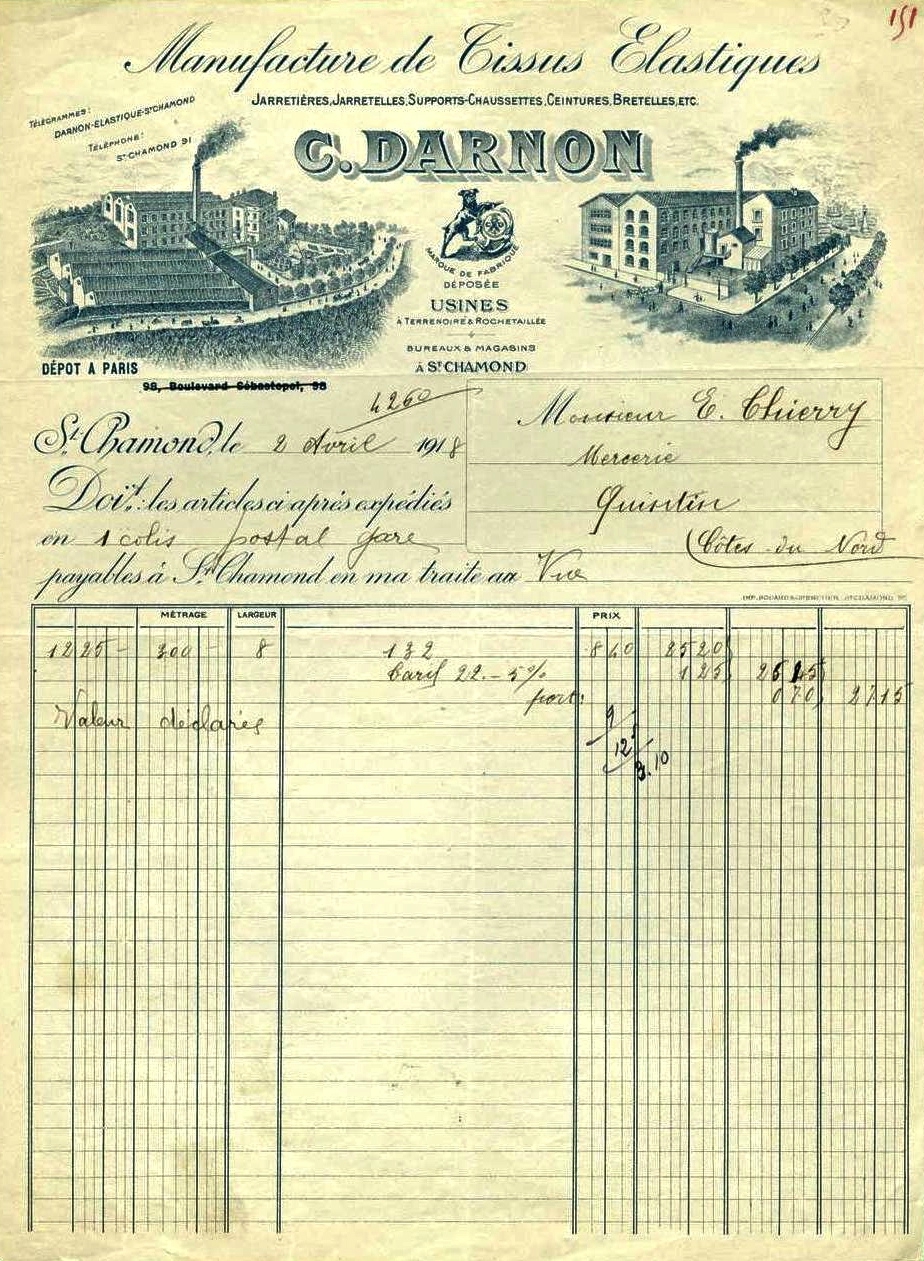 151
Manufacture de Tissus Elastiques
JARRETIÈRES, JARRETELLES, SUPPORTS-CHAUSSETTES, CEINTURES, BRETELLES, ETC.
TÉLÉGRAMMES:
DARNON-ELASTIQUE-ST CHAMOND
TÉLÉPHONE:
ST CHAMOND 91
C. DARNON
MARQUE DE FABRIQUE
DÉPOSÉE
USINES
À TERRENOIRE & ROCHETAILLÉE
BUREAUX & MAGASINS
À ST CHAMOND
DÉPOT A PARIS
98, Boulevard Sébastopol, 98
4260
St Chamond, le 2 Avril 1918
Monsieur E. Thierry
Mercerie
Quintin
(Côtes du Nord
Doit: les articles ci après expédiés
en 1 colis postal gare
payables à St Chamond en ma traite au Vue
MÉTRAGE LARGEUR PRIX
12 25 - 300 - 8 132 8 40 25 20
Tarif 22. - 5% 1 25 26 45
port: 0 70 27 15
Valeur déclarés
9
12
3.10